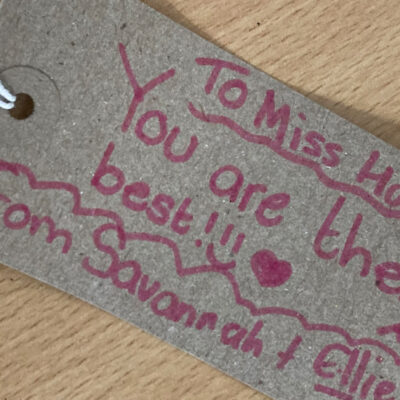 To Miss
You are the
best!!!
From Savannah + Ellie